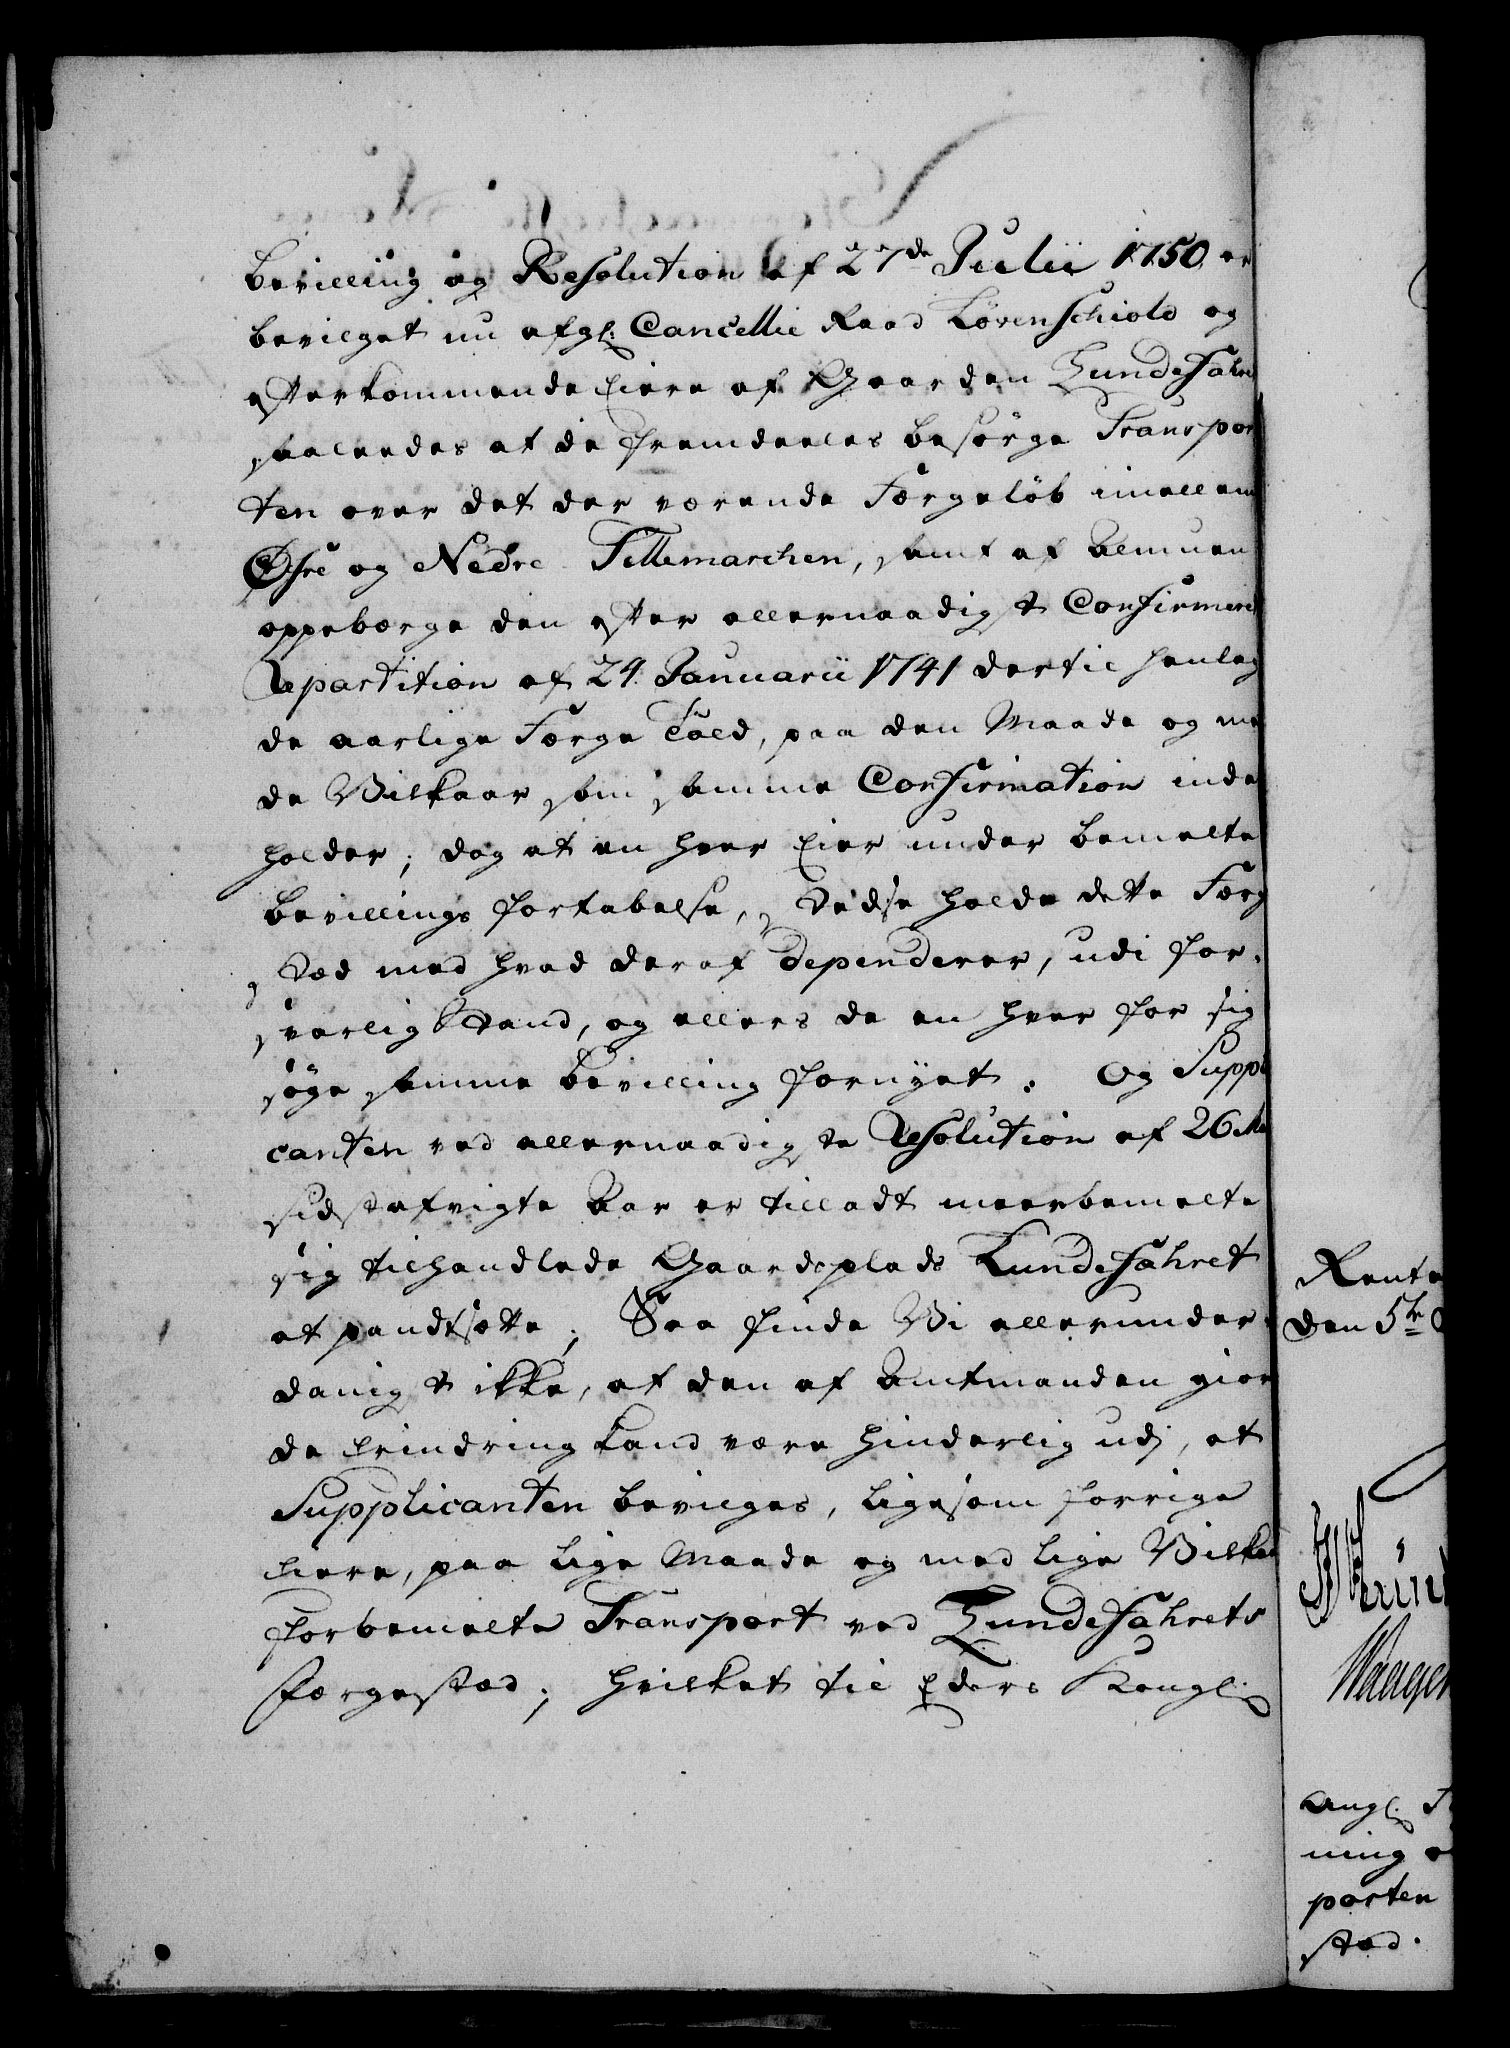 bevilling og Resolution af 27de Julii 1750 er
bevilget nu afgl: Cancellie Raad Lövenschiold og
efterkommende Eiere af Gaarden LundeFahre
saaledes at de fremdeeles besørge Transpor
ten over det der værende Færgeløb imellem
Øfre og Nedre Tillemarchen, samt af Almuen
oppebærge den efter allernaadigst Confirmere
Repartition af 24 Januarii 1741 dertil henlag
de aarlige Færge Told, paa den Maade og me
de Vilkaar som samme Confirmation inde
holder; dog at en hver Eier under bemelte
bevillings fortabelse, stedse holde dette Færg
sted med hvad deraf dependerer, udi for-
svarlig Stand, og ellers de en hver for sig
søge samme bevilling fornyet. Og Suppli
canten ved allernaadigste Resolution af 26 Ma
sidstafvigte Aar er tilladt meerbemelte
sig tilhandlede Gaardsplads LundeFahret
at pandtsette; Saa finde Vi allerunder-
danigst ikke, at den af Amtmanden gior
de Erindring kand være hinderlig udj, at
Supplicanten bevilges, ligesom forrige
Eiere, paa lige Maade og med lige Vilkaa
forbemelte Transport ved LundeFahrets
færgestæd; hvilket til Eders Kongl:
Rente
den 5te
Waagen
angl. F
ning
porten
stæd.